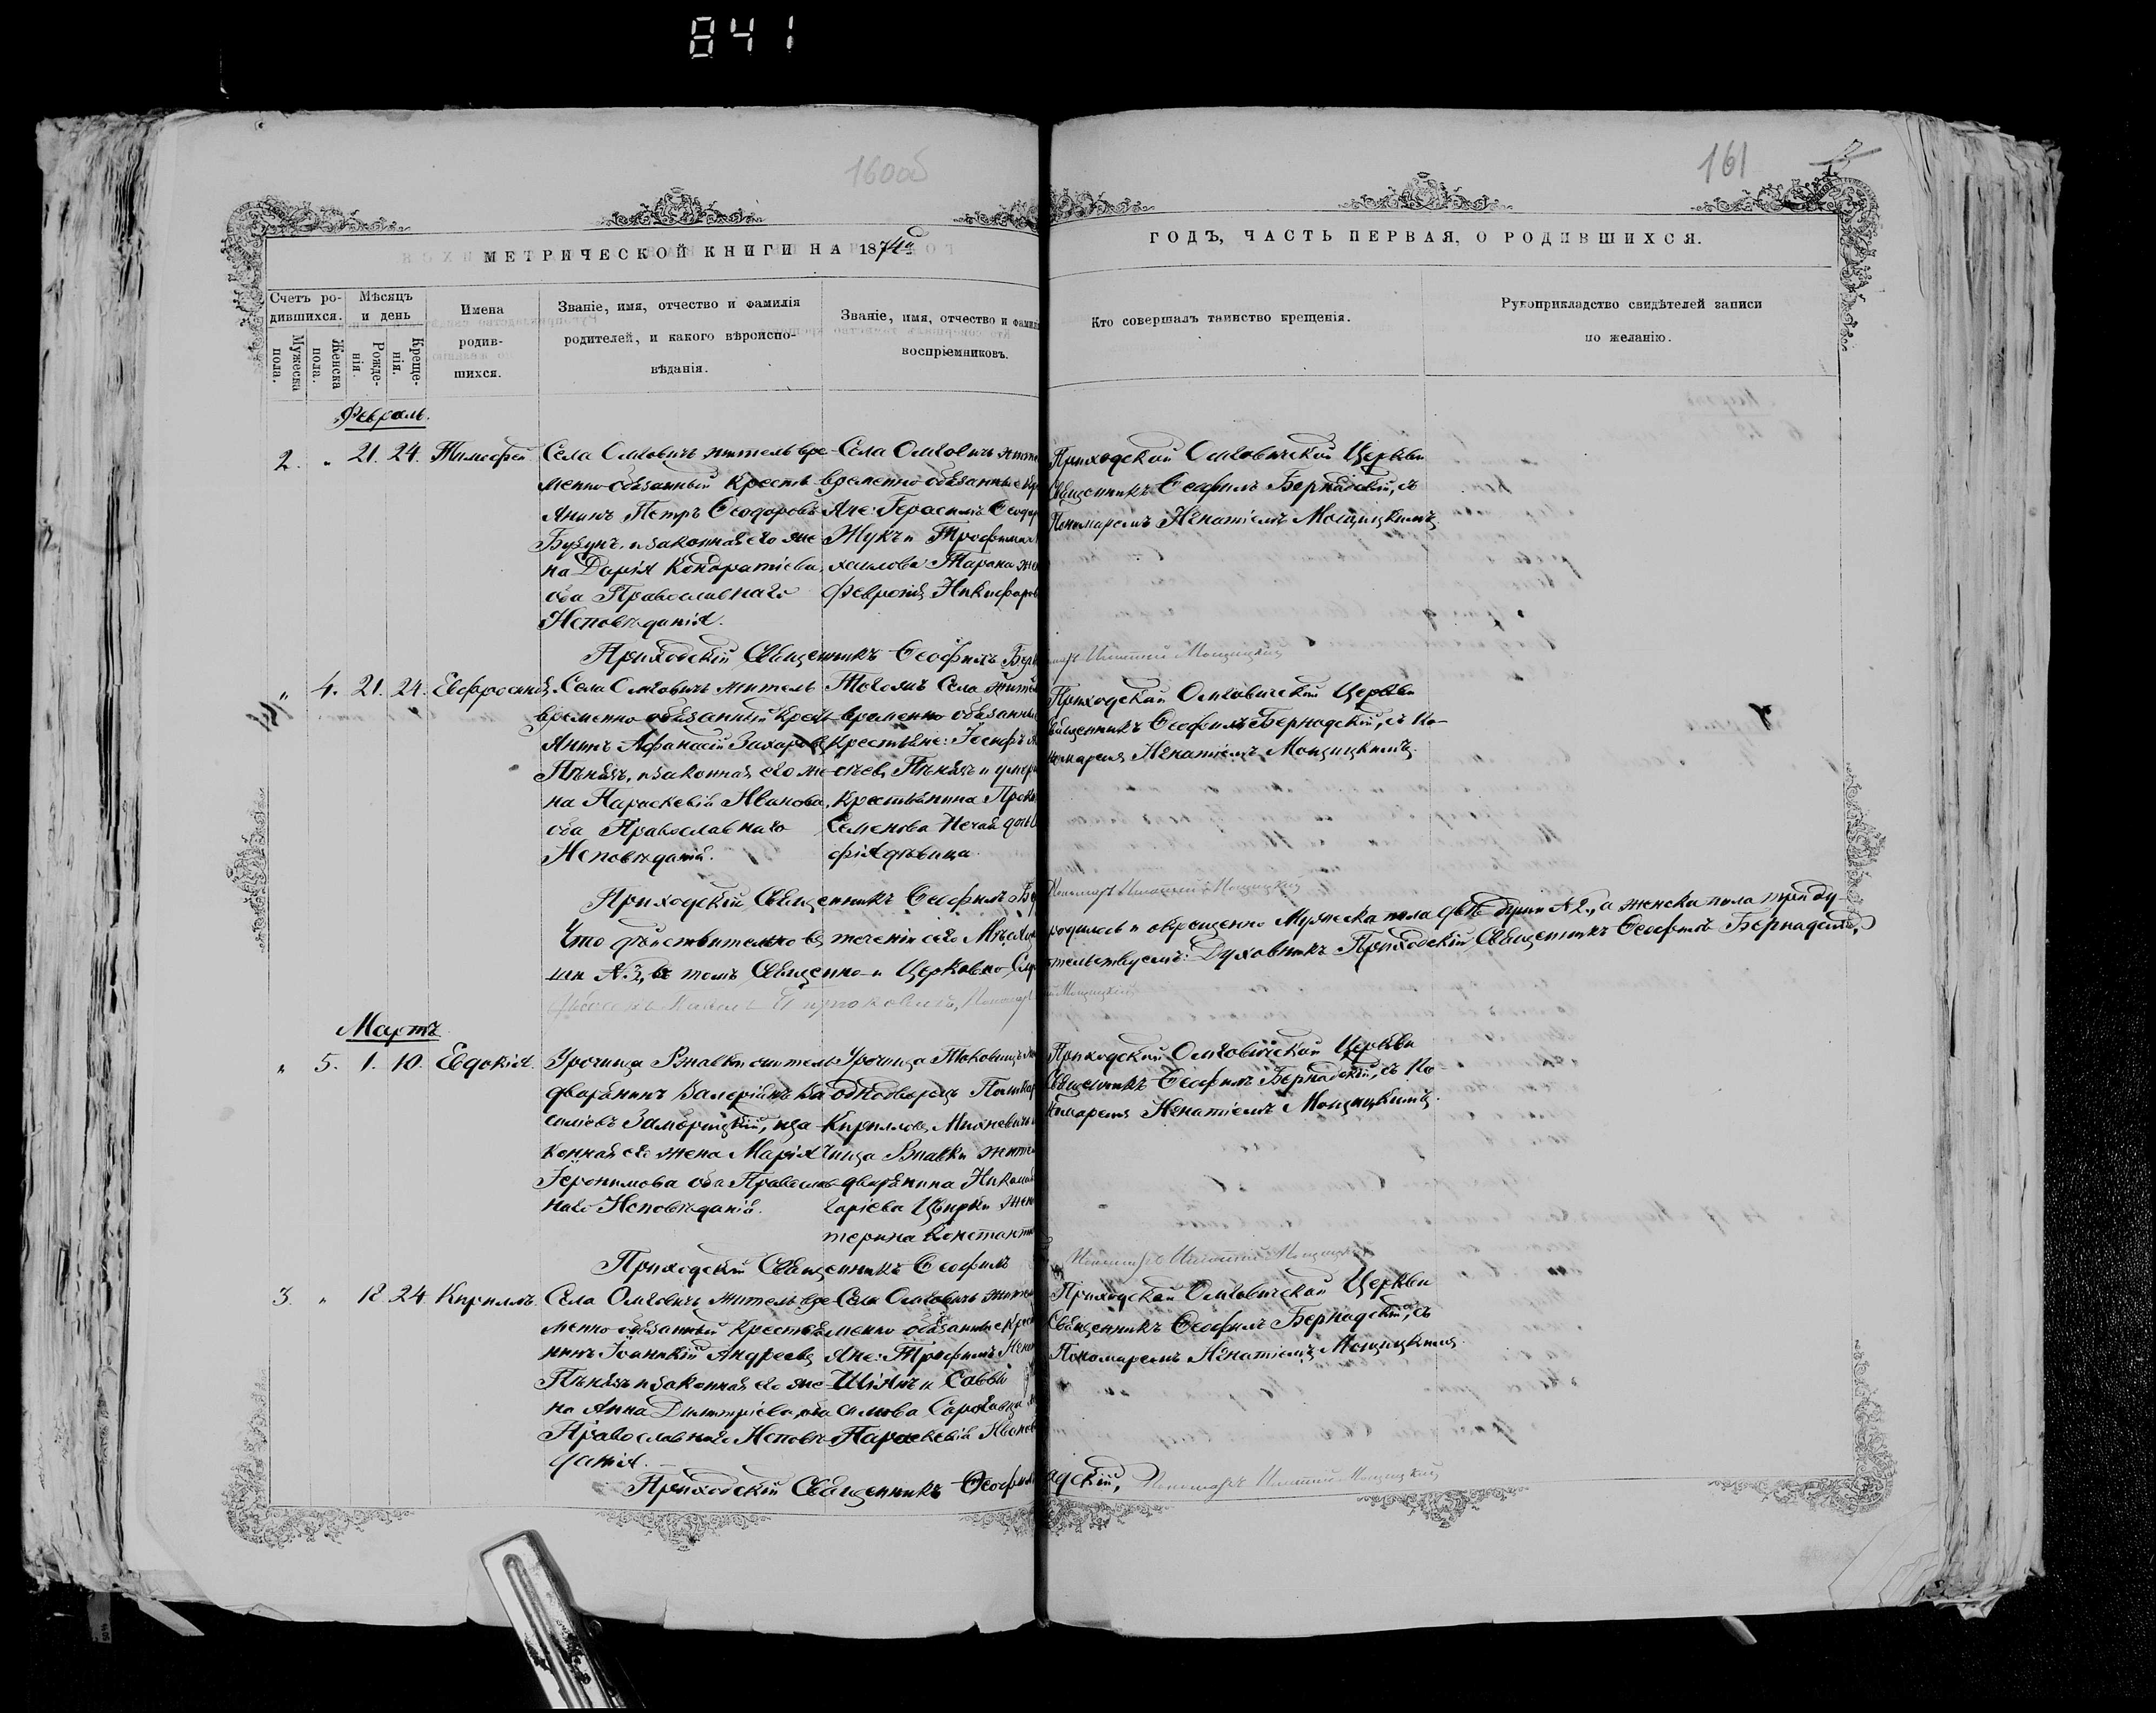 841
160об
161
МЕТРИЧЕСКОЙ КНИГИ НА 1874й
ГОДЪ, ЧАСТЬ ПЕРВАЯ, О РОДИВШИХСЯ.
Счетъ ро-
дившихся.
Мужеска
пола.
Женска
пола.
Мѣсяцъ
и день
Рожде-
нія.
Креще-
нія.
Имена
родив-
шихся.
Званіе, имя, отчество и фамилія
родителей, и какого вѣроиспо-
вѣданія.
Званіе, имя, отчество и фамил
воспріемниковъ.
Кто совершалъ таинство крещенія.
Рукоприкладство свидѣтелей записи
по желанію.
Февраль.
2. " 21. 24. Тимофей
Села Омговичъ житель вре-
менно обязанный кресть-
янинъ Петръ Ѳеодоровъ
Бузунъ, и законная его же
на Дарія Кондратіева,
оба Православнаго
Исповѣданія.
Села Омговичъ жите
временно обязанные кре
яне: Герасимъ Ѳеодор
Жукъ и Трофима
хаилова Тарана же
Февронія Никифоров
Приходской Омговичской Церкви
Священникъ Ѳеофилъ Бернадскій, съ
Пономаремъ Игнатіемъ Мощицкимъ.
Приходскій Священникъ Ѳеофилъ Бер
Игнатій Мощицкій
" 4. 21. 24. Евфросинія.
Села Омговичъ житель
временно обязанный крест
янинъ Афанасій Захаровъ
Пѣнязь, и законная его же
на Параскевія Иванова,
оба Православнаго
Исповѣданія.
Тогожъ Села жите
временно обязанные
Крестьяне: Іосифъ
Пѣнязь и умер
крестьянина Проко
Семенова Нечай дочь
фія дѣвица.
Приходской Омговичской Церкви
Священникъ Ѳеофилъ Бернадскій, съ По-
номаремъ Игнатіемъ Мощицкимъ.
Приходскій Священникъ Ѳеофилъ Бе
Пономарь Игнатій Мощицкій
Что дѣйствительно въ теченіи сего Мѣсяца
родилось и окрещенно Мужеска пола двѣ души №2., а женска пола три ду-
ши №3, въ томъ Священно- и Церковно Слу
тельствуемъ: Духовникъ Приходскій Священникъ Ѳеофилъ Бернадскій,
Пономарь
Мощицкій
Мартъ
" 5. 1. 10. Евдокія.
Урочища Вналки житель
дворянинъ Валеріанъ Ва
силіевъ Замбрицкій, и за
конная его жена Марія
Іеронимова оба Православ
наго Исповѣданія.
Урочища
однодворецъ Поликар
Кирилловъ Михневичъ
чища Вналки жите
дворянина Никола
горіева Цвирки жен
терина Константи
Приходской Омговичской Церкви
Священникъ Ѳеофилъ Бернадскій, съ По
номаремъ Игнатіемъ Мощицкимъ.
Приходскій Священникъ Ѳеофилъ
Пономарь Игнатій Мощицкій
3. " 12 24 Кириллъ.
Села Омговичъ житель вре
менно обязанный крестья
нинъ Іоаникій Андреевъ
Пѣнязь и законная его же
на Анна Димитріева, оба
Православнаго Исповѣ
данія.
Села Омговичъ жите
менно обязанные крест
яне: Трофимъ
Шіянъ и Саввы
Параскевія Иванов
Приходской Омговичской Церкви
Священникъ Ѳеофилъ Бернадскій, съ
Пономаремъ Игнатіемъ Мощицкимъ.
Приходскій Священникъ Ѳеофил
адскій, Пономарь Игнатій Мощицкій